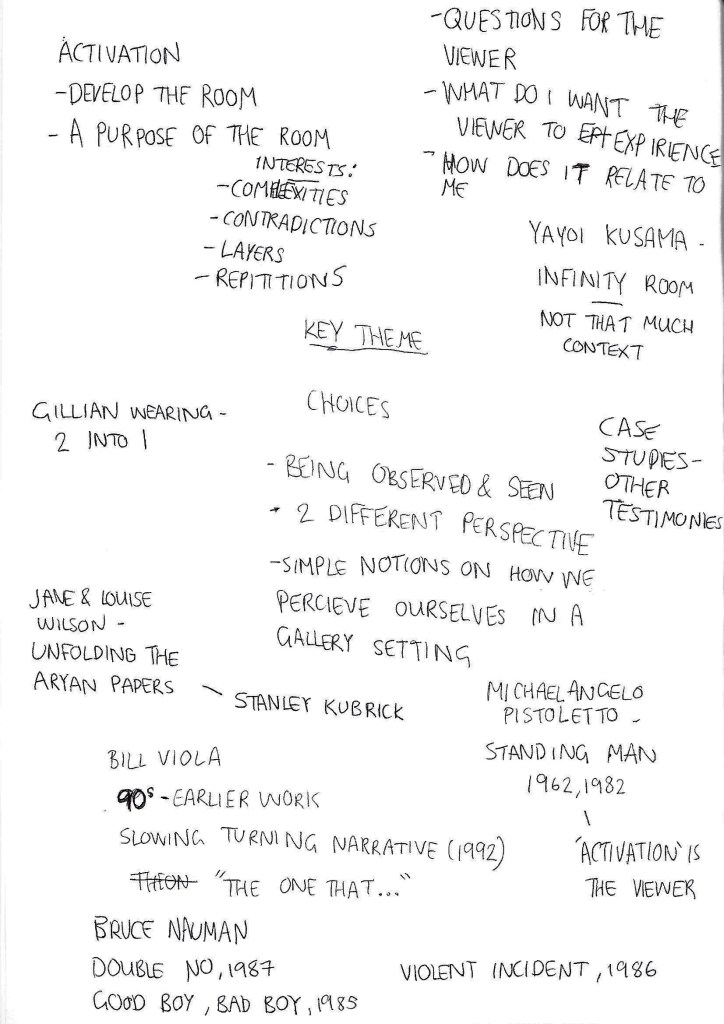 ACTIVATION
-DEVELOP THE ROOM
- A PURPOSE OF THE ROOM
INTERESTS:
-COMPLEXITIES
-CONTRADICTIONS
- LAYERS
- REPITITIONS
-QUESTIONS FOR THE
VIEWER
- WHAT DO I WANT THE
VIEWER TO EXPIRIENCE
- HOW DOES IT RELATE TO
ME
YAYOI KUSAMA -
INFINITY ROOM
NOT THAT MUCH
CONTEXT
KEY THEME
CHOICES
GILLIAN WEARING -
2 INTO 1
- BEING OBSERVED & SEEN
- 2 DIFFERENT PERSPECTIVE
-SIMPLE NOTIONS ON HOW WE
PERCIEVE OURSELVES IN A
GALLERY SETTING
CASE
STUDIES-
OTHER
TESTIMONIES
JANE & LOUISE
WILSON -
UNFOLDING THE
ARYAN PAPERS
\ STANLEY KUBRICK
MICHAELANGELO
PISTOLETTO -
STANDING MAN
1962, 1982
\
'ACTIVATION' IS
THE VIEWER
BILL VIOLA
90s - EARLIER WORK
SLOWING TURNING NARRATIVE (1992)
"THE ONE THAT..."
BRUCE NAUMAN
DOUBLE NO, 1987
GOOD BOY, BAD BOY, 1985
VIOLENT INCIDENT, 1986